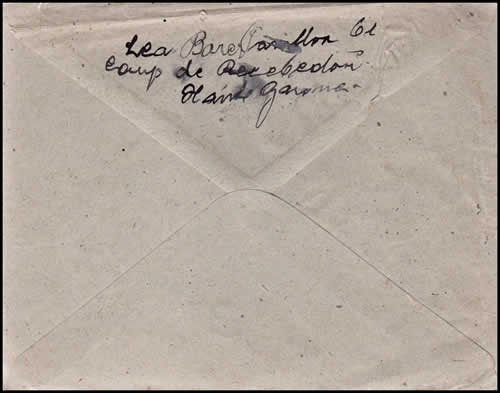 Lea Bare Pavillon 61
Camp de Recebedon
Haute Garonne